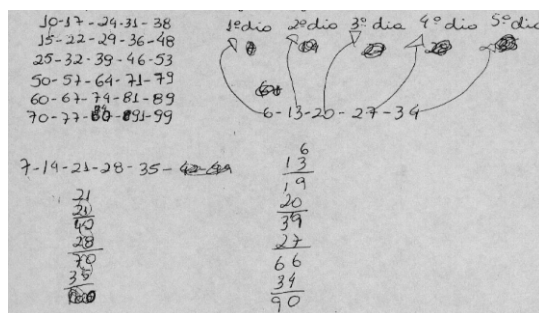 10-17-24-31-38
15-22-29-36-48
25-32-39-46-53
50-57-64-71-79
60-67-74-81-89
70-77- -91-99
1º dia 2º dia 3º dia 4º dia 5º dia
6-13-20-27-34
7-14-21-28-35-42-49
21
40
28
70
35
6
13
19
20
39
27
66
34
90